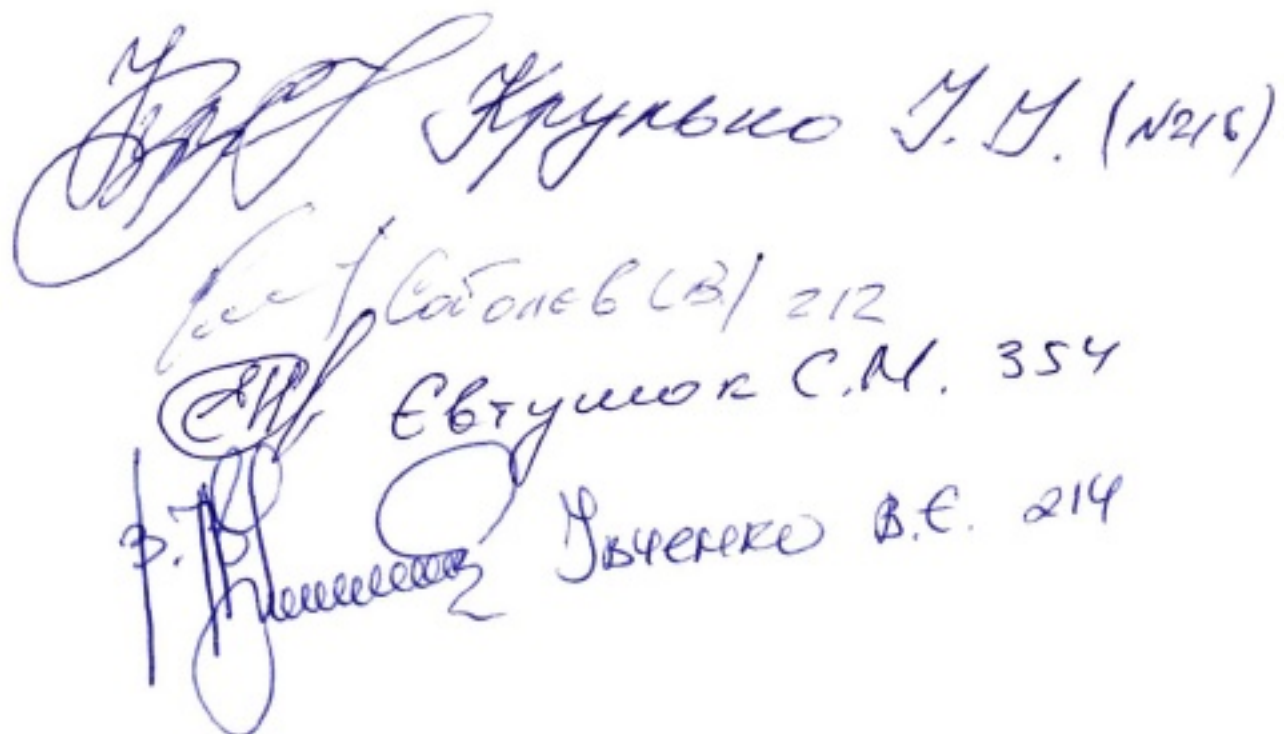 Крулько І. І. (№216)
Соболєв С.В. 212
Євтушок С.М. 354
Івченко В.Є. 214